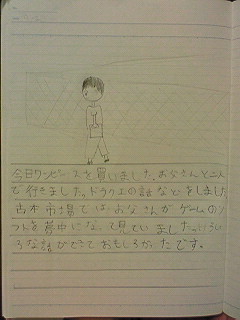 今日ワンピースを買いました。お父さんと二人
で行きました。ドラクエの話などをしました
古本市場ではお父さんがゲームのソ
フトを夢中になって見ていました。いろい
ろな話ができておもしろかったです。